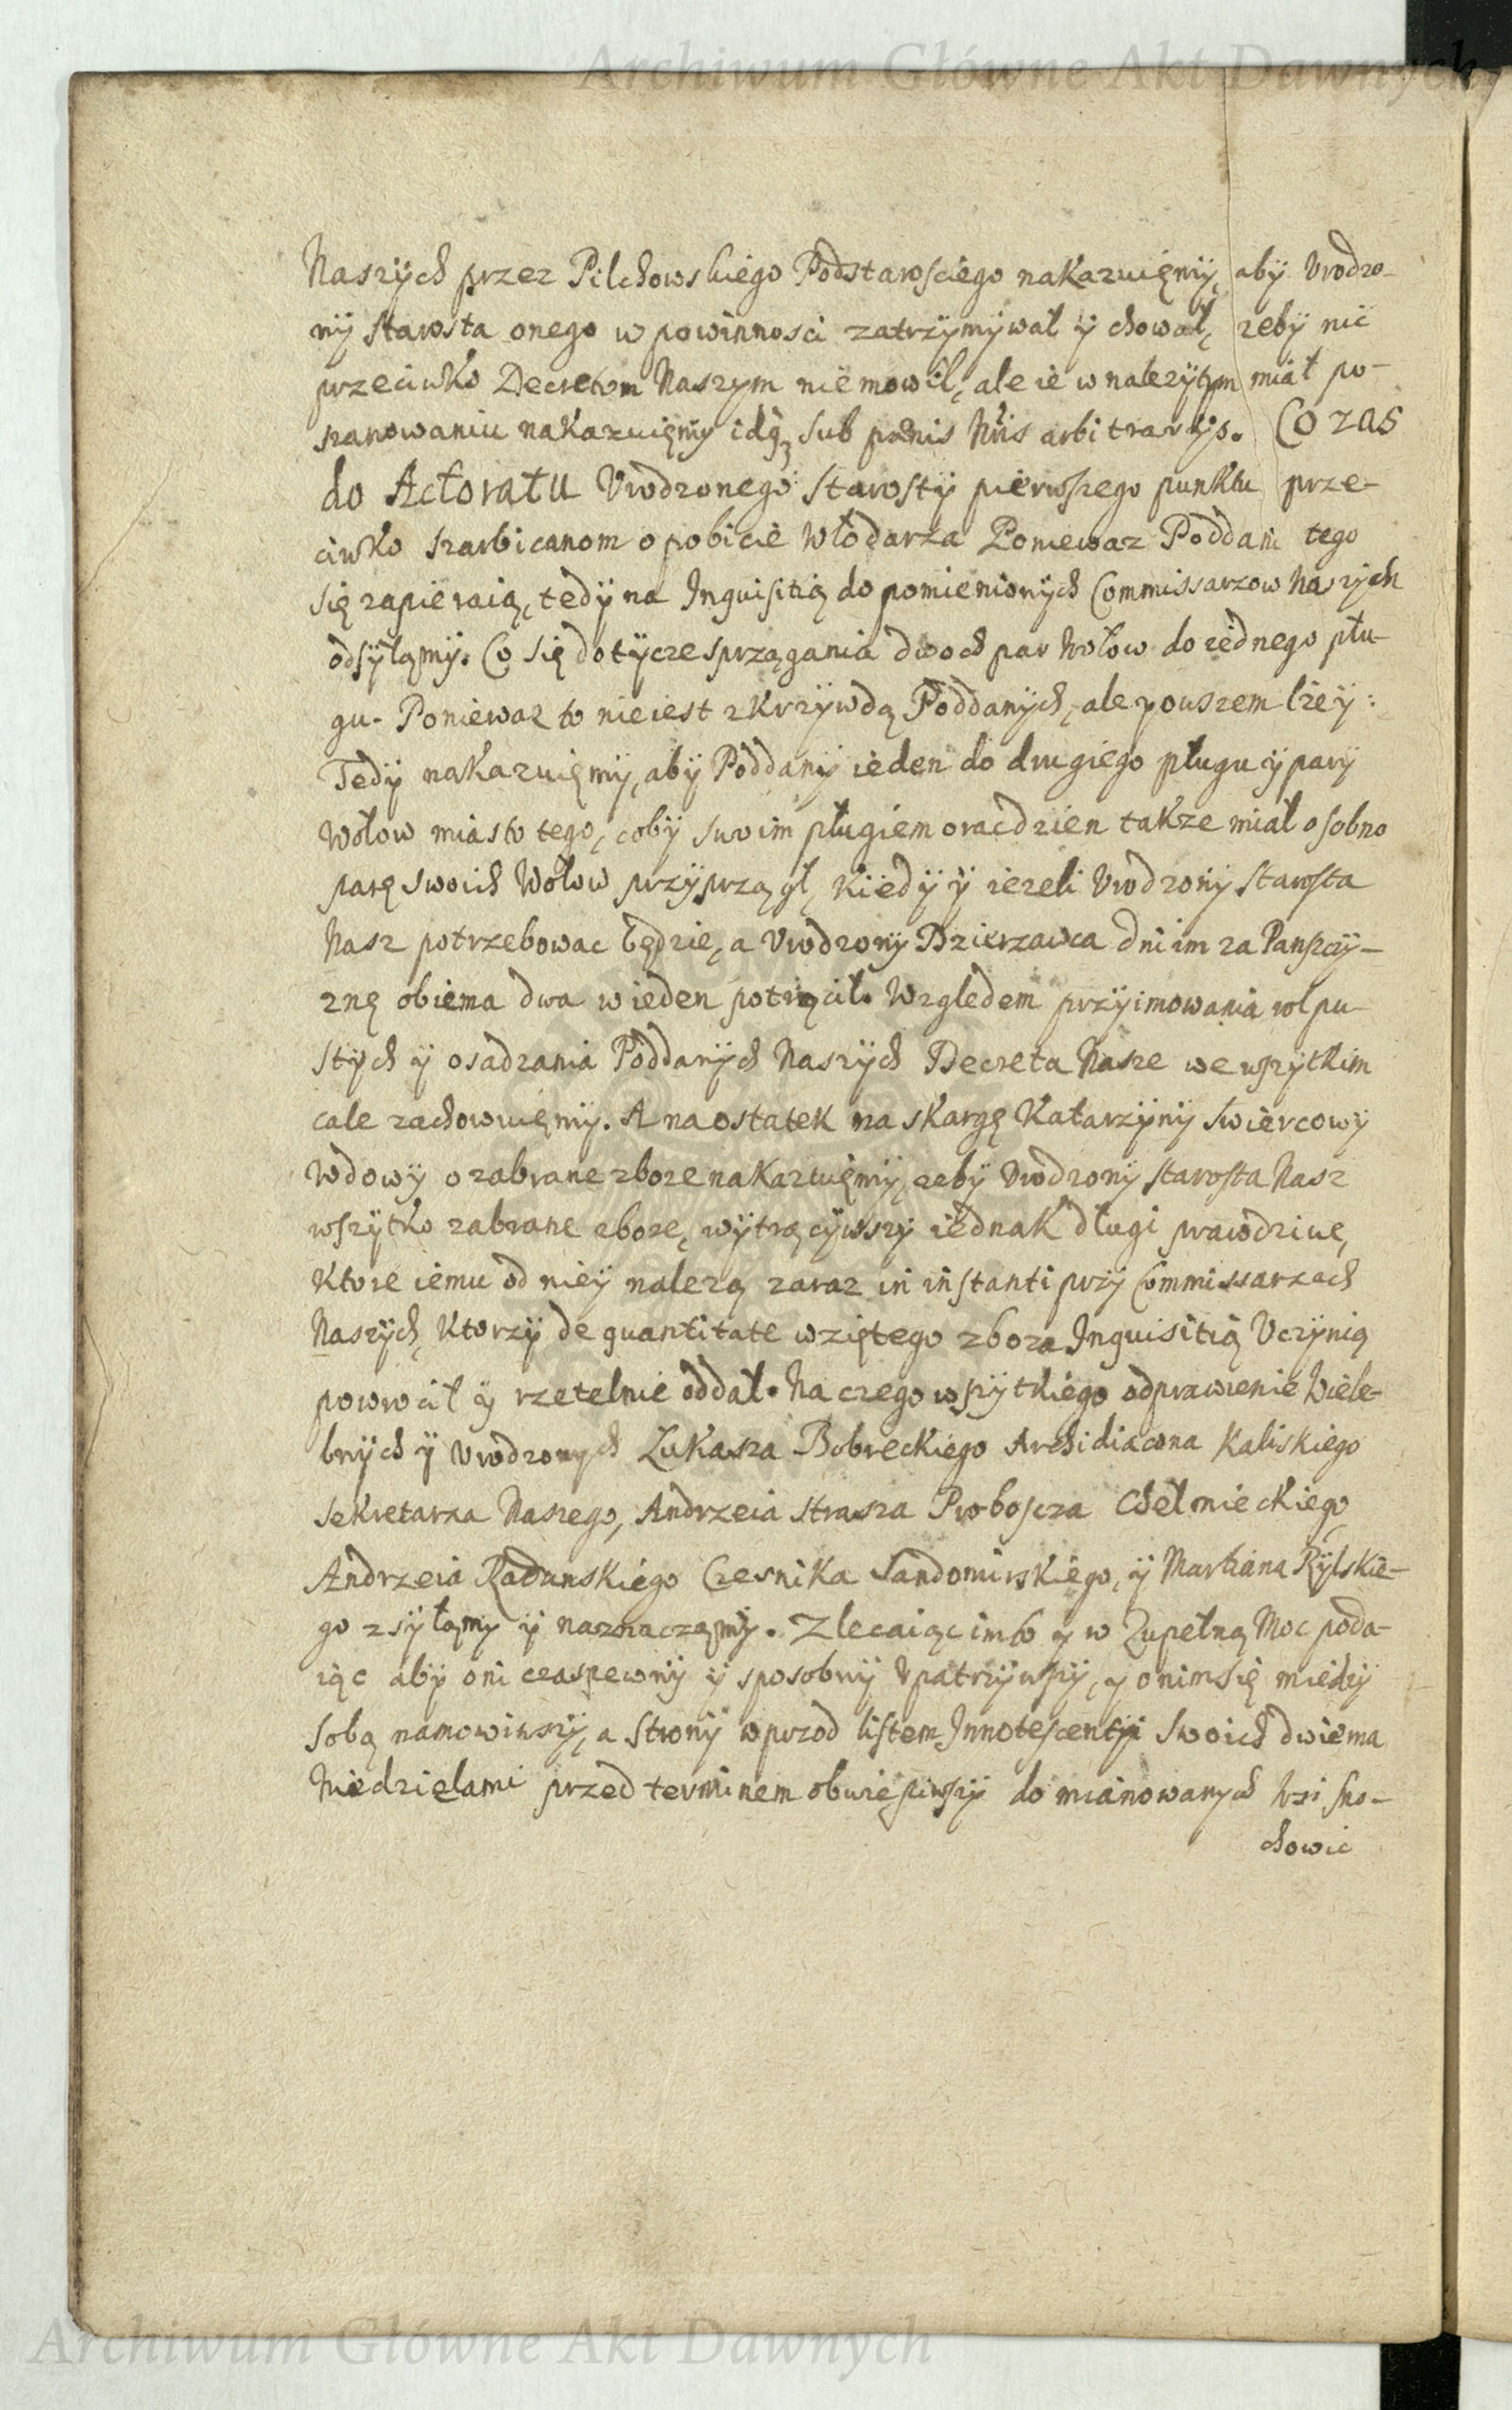 Archiwum Główne Akt Dawnych
Naszÿch przez Pilchowskiego Podstarosciego nakazuięmÿ, abÿ Vrodzo-
nÿ Starosta onego w powinnosci zatrzÿmÿwał ÿ chował, zebÿ nic
przeciwko Decretom Naszym nie mowił, ale ie w nalezÿtym miał po-
szanowaniu nakazuięmÿ idq3 sub pænis Nris arbitrarÿs. Co zas
do Actoratu Vrodzonego Starostÿ pierwszego punktu prze-
ciwko Szarbicanom o pobicie Włodarza Poniewaz Poddani tego
się zapieraią, tedÿ na Inquisitią do pomienionÿch Commissarzow Naszÿch
odsÿłamÿ. Co się dotÿcze sprzągania dwoch par Wołow do iednego płu-
gu. Poniewaz to nie iest z krzÿwdą Poddanÿch, ale pouszem lzeÿ:
Tedÿ nakazuięmÿ, abÿ Poddanÿ ieden do drugiego pługu ÿ parÿ
Wołow miasto tego, cobÿ swoim pługiem orac dzien takze miał osobno
parę swoich Wołow przÿprzągł, kiedÿ ÿ iezeli Vrodzonÿ Starosta
Nasz potrzebowac będzie, a Vrodzonÿ Dzierzawca dni im za Panszczÿ-
znę obiema dwa w ieden potrącił. Względem przÿimowania rol pu-
stÿch ÿ osadzania Poddanÿch Naszÿch Decreta Nasze we wszÿtkim
cale zachowuięmÿ. A na ostatek na skargę Katarzÿnÿ Swiercowÿ
Wdowÿ o zabrane zboze nakazuięmÿ, zebÿ Vrodzonÿ Starosta Nasz
wszÿtko zabrane zboze, wÿtrącÿwszÿ iednak długi prawdziwe,
ktore iemu od nieÿ nalezą zaraz in instanti przÿ Commissarzach
Naszÿch, ktorzÿ de quantitate wziętego zboza Inquisitią Vczÿnią
powrocił ÿ rzetelnie oddał. Na czego wszÿtkiego odprawienie Wiele-
bnÿch ÿ Vrodzonych Łukasza Bobreckiego Archidiacona Kaliskiego
Sekretarza Naszego, Andrzeia Strasza Proboscza Chełmieckiego,
Andrzeia Radunskiego Czesnika Sandomirskiego, ÿ Martiana Rÿlskie-
go zsÿłamy ÿ naznaczamÿ. Zlecaiąc im to ÿ w Zupełną Moc poda-
iąc abÿ oni czas pewnÿ ÿ sposobnÿ Vpatrzÿwszÿ, ÿ o nim się miedzÿ
sobą namowiwszÿ, a stronÿ wprzod listem Innotescentÿi swoich dwiema
Niedzielami przed terminem obwiesciwszÿ do mianowanych Wsi Sno-
chowic
Archiwum Główne Akt Dawnych